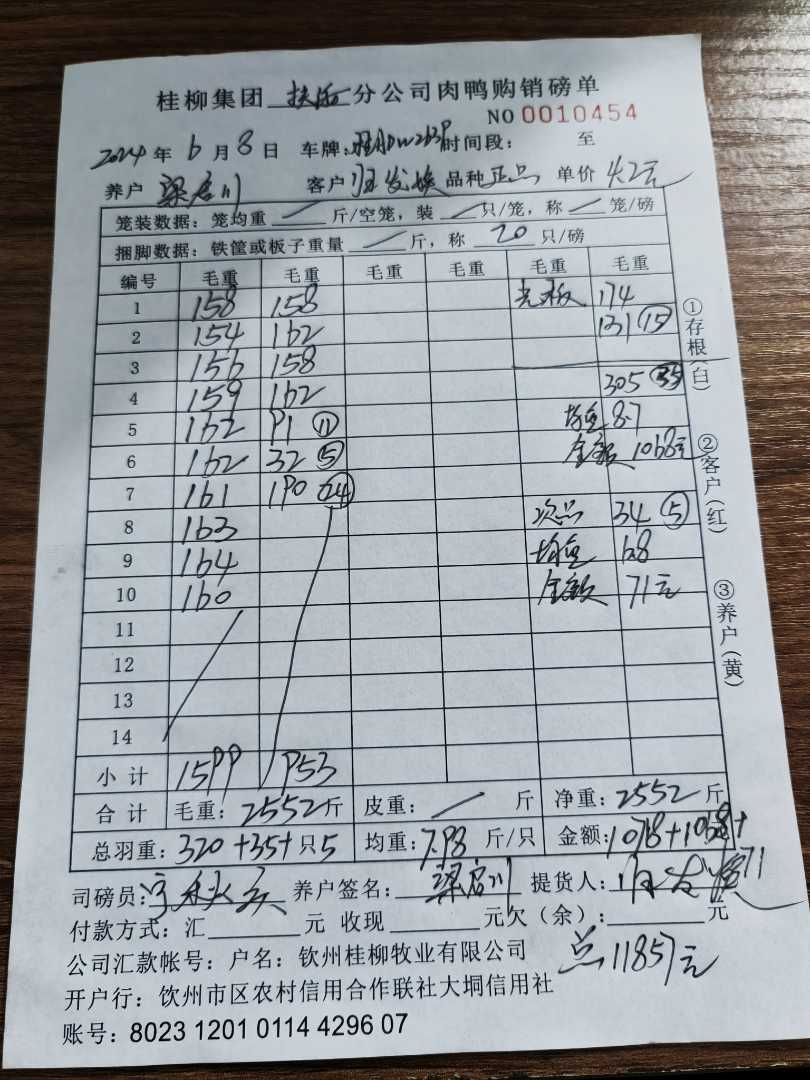 桂柳集团 分公司肉鸭购销磅单
NO 0010454
2024 年 6 月 8 日 车牌: 时间段: 至
养户 梁启川 客户 品种 正品 单价 4.2元
笼装数据: 笼均重 / 斤/空笼, 装 / 只/笼, 称 / 笼/磅
捆脚数据: 铁筐或板子重量 / 斤, 称 20 只/磅
编号 毛重 毛重 毛重 毛重 毛重 毛重
1 158 158 光板 174
2 154 162 131 (15)
3 156 158
4 159 162 305 (35)
5 162 91 (11) 均重 8.7
6 162 32 (5) 金额 1068元
7 161 190 (24)
8 163 次品 34 (5)
9 164 均重 6.8
10 160 金额 71元
11
12
13
14
小计 1599 953
合计 毛重: 2552斤 皮重: / 斤 净重: 2552斤
总羽重: 320+35+只5 均重: 7.98 斤/只 金额: +1068+
71
司磅员: 养户签名: 梁启川 提货人:
付款方式: 汇 元 收现 元欠(余): 元
总11857元
公司汇款帐号: 户名: 钦州桂柳牧业有限公司
开户行: 钦州市区农村信用合作联社大垌信用社
账号: 8023 1201 0114 4296 07
①存根(白)
②客户(红)
③养户(黄)